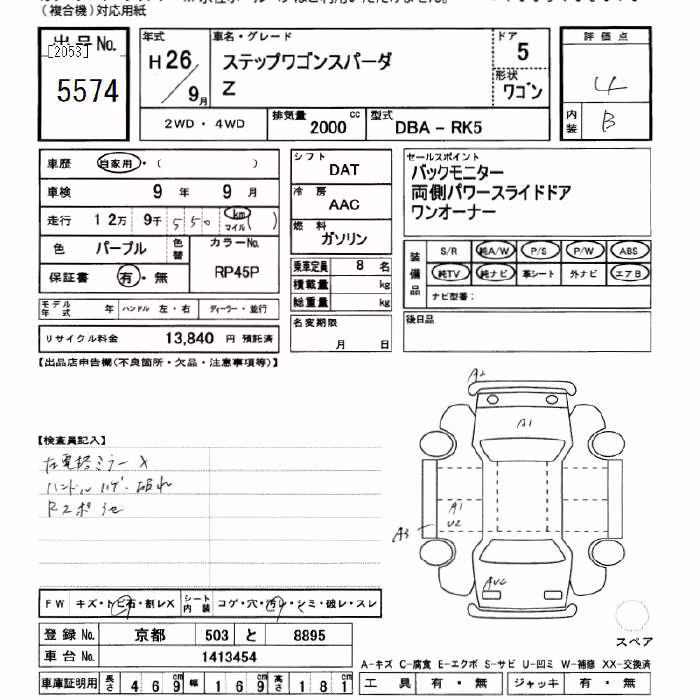 (複合機)対応用紙
出品No. [2053] 5574
年式 H26/9月
車名・グレード ステップワゴンスパーダ Z
ドア 5
形状 ワゴン
評価点 4
内装 B
2WD・4WD
排気量 2000 cc
型式 DBA-RK5
車歴 自家用・( )
車検 9年 9月
走行 12万 9千 550 km マイル ( )
色 パープル 色替
カラーNo. RP45P
保証書 有・無
モデル年式 年 ハンドル 左・右 ディーラー・並行
リサイクル料金 13,840 円 預託済
シフト DAT
冷房 AAC
燃料 ガソリン
乗車定員 8 名
積載量 kg
総重量 kg
名変期限 月 日
セールスポイント
バックモニター
両側パワースライドドア
ワンオーナー
装備品 S/R 純A/W P/S P/W ABS
純TV 純ナビ 革シート 外ナビ エアB
ナビ型番:
後日品
【出品店申告欄(不良箇所・欠品・注意事項等)】
A2
A1
A1
U2
A3
【検査員記入】
左電格ミラー X
ハンドル ハゲ・破れ
FW キズ・トビ石・割レX シート内装 コゲ・穴・汚レ・シミ・破レ・スレ
登録No. 京都 503 と 8895
車台No. 1413454
車庫証明用 長さ 469 幅 169 高さ 181
スペア
A-キズ C-腐食 E-エクボ S-サビ U-凹ミ W-補修 XX-交換済
工具 有・無 ジャッキ 有・無